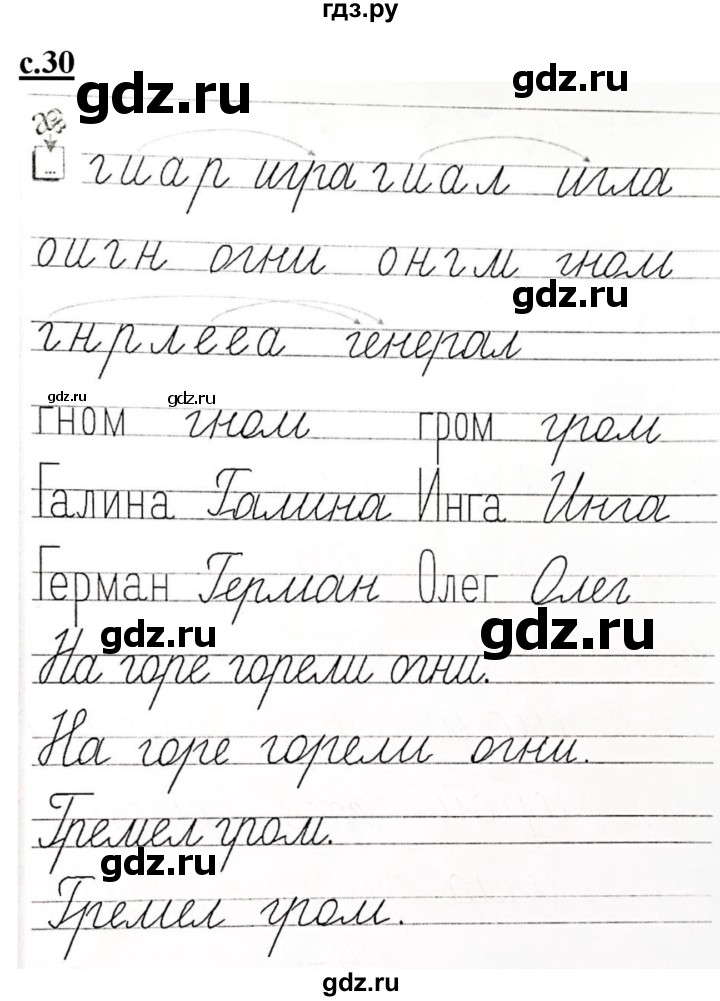 гдз.ру
с.30
gdz.ru gdz.ru
...
гиар игра гиал игла
оигн огни онгм гном
gdz.ru
гнрлееа генерал
gdz.ru gdz.ru
гном гном гром гром
Галина Галина Инга Инга
Герман Герман Олег Олег
gdz.ru gdz.ru
На горе горели огни.
На горе горели огни.
Гремел гром.
gdz.ru gdz.ru
Гремел гром.
gdz.ru